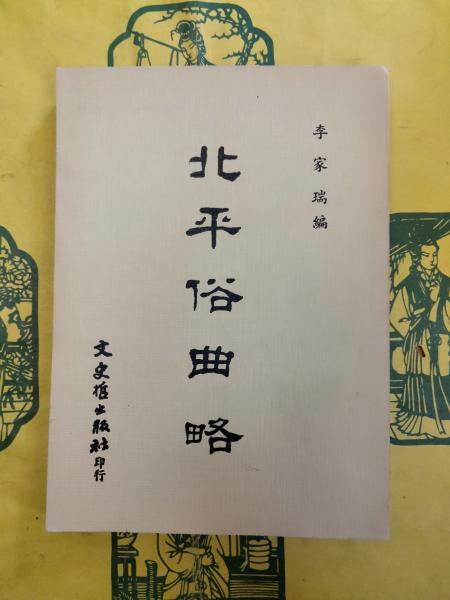 李家瑞編
北平俗曲略
文史哲出版社印行